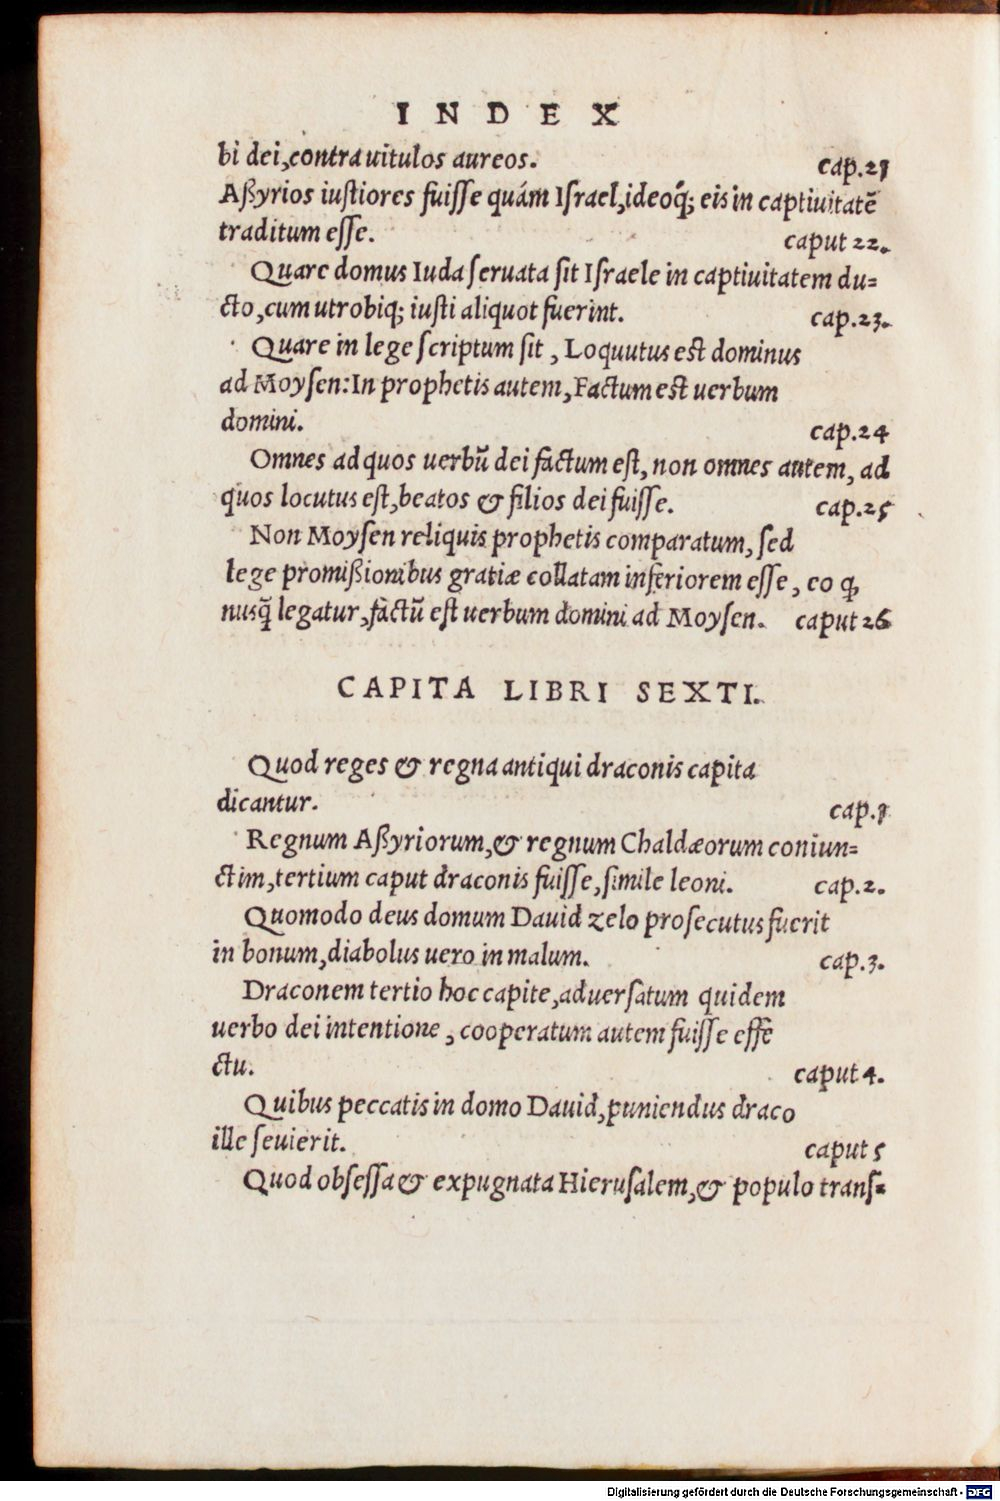 INDEX
bi dei,contra uitulos aureos. cap.21
Aßyrios iustiores fuisse quám Israel,ideoq́; eis in captiuitatē
traditum esse. caput 22.
Quare domus Iuda seruata sit Israele in captiuitatem du=
cto,cum utrobiq; iusti aliquot fuerint. cap.23.
Quare in lege scriptum sit, Loquutus est dominus
ad Moysen:In prophetis autem,Factum est uerbum
domini. cap.24
Omnes ad quos uerbũ dei factum est, non omnes autem, ad
quos locutus est,beatos & filios dei fuisse. cap.25
Non Moysen reliquis prophetis comparatum, sed
lege promißionibus gratiæ collatam inferiorem esse, eo ꝙ
nusq̃ legatur,factũ est uerbum domini ad Moysen. caput 26
CAPITA LIBRI SEXTI.
Quod reges & regna antiqui draconis capita
dicantur. cap.1
Regnum Aßyriorum,& regnum Chaldæorum coniun=
ctim,tertium caput draconis fuisse,simile leoni. cap.2.
Quomodo deus domum Dauid zelo prosecutus fuerit
in bonum,diabolus uero in malum. cap.3.
Draconem tertio hoc capite,aduersatum quidem
uerbo dei intentione, cooperatum autem fuisse effe
ctu. caput 4.
Quibus peccatis in domo Dauid,puniendus draco
ille seuierit. caput 5
Quod obsessa & expugnata Hierusalem,& populo trans=
Digitalisierung gefördert durch die Deutsche Forschungsgemeinschaft - DFG